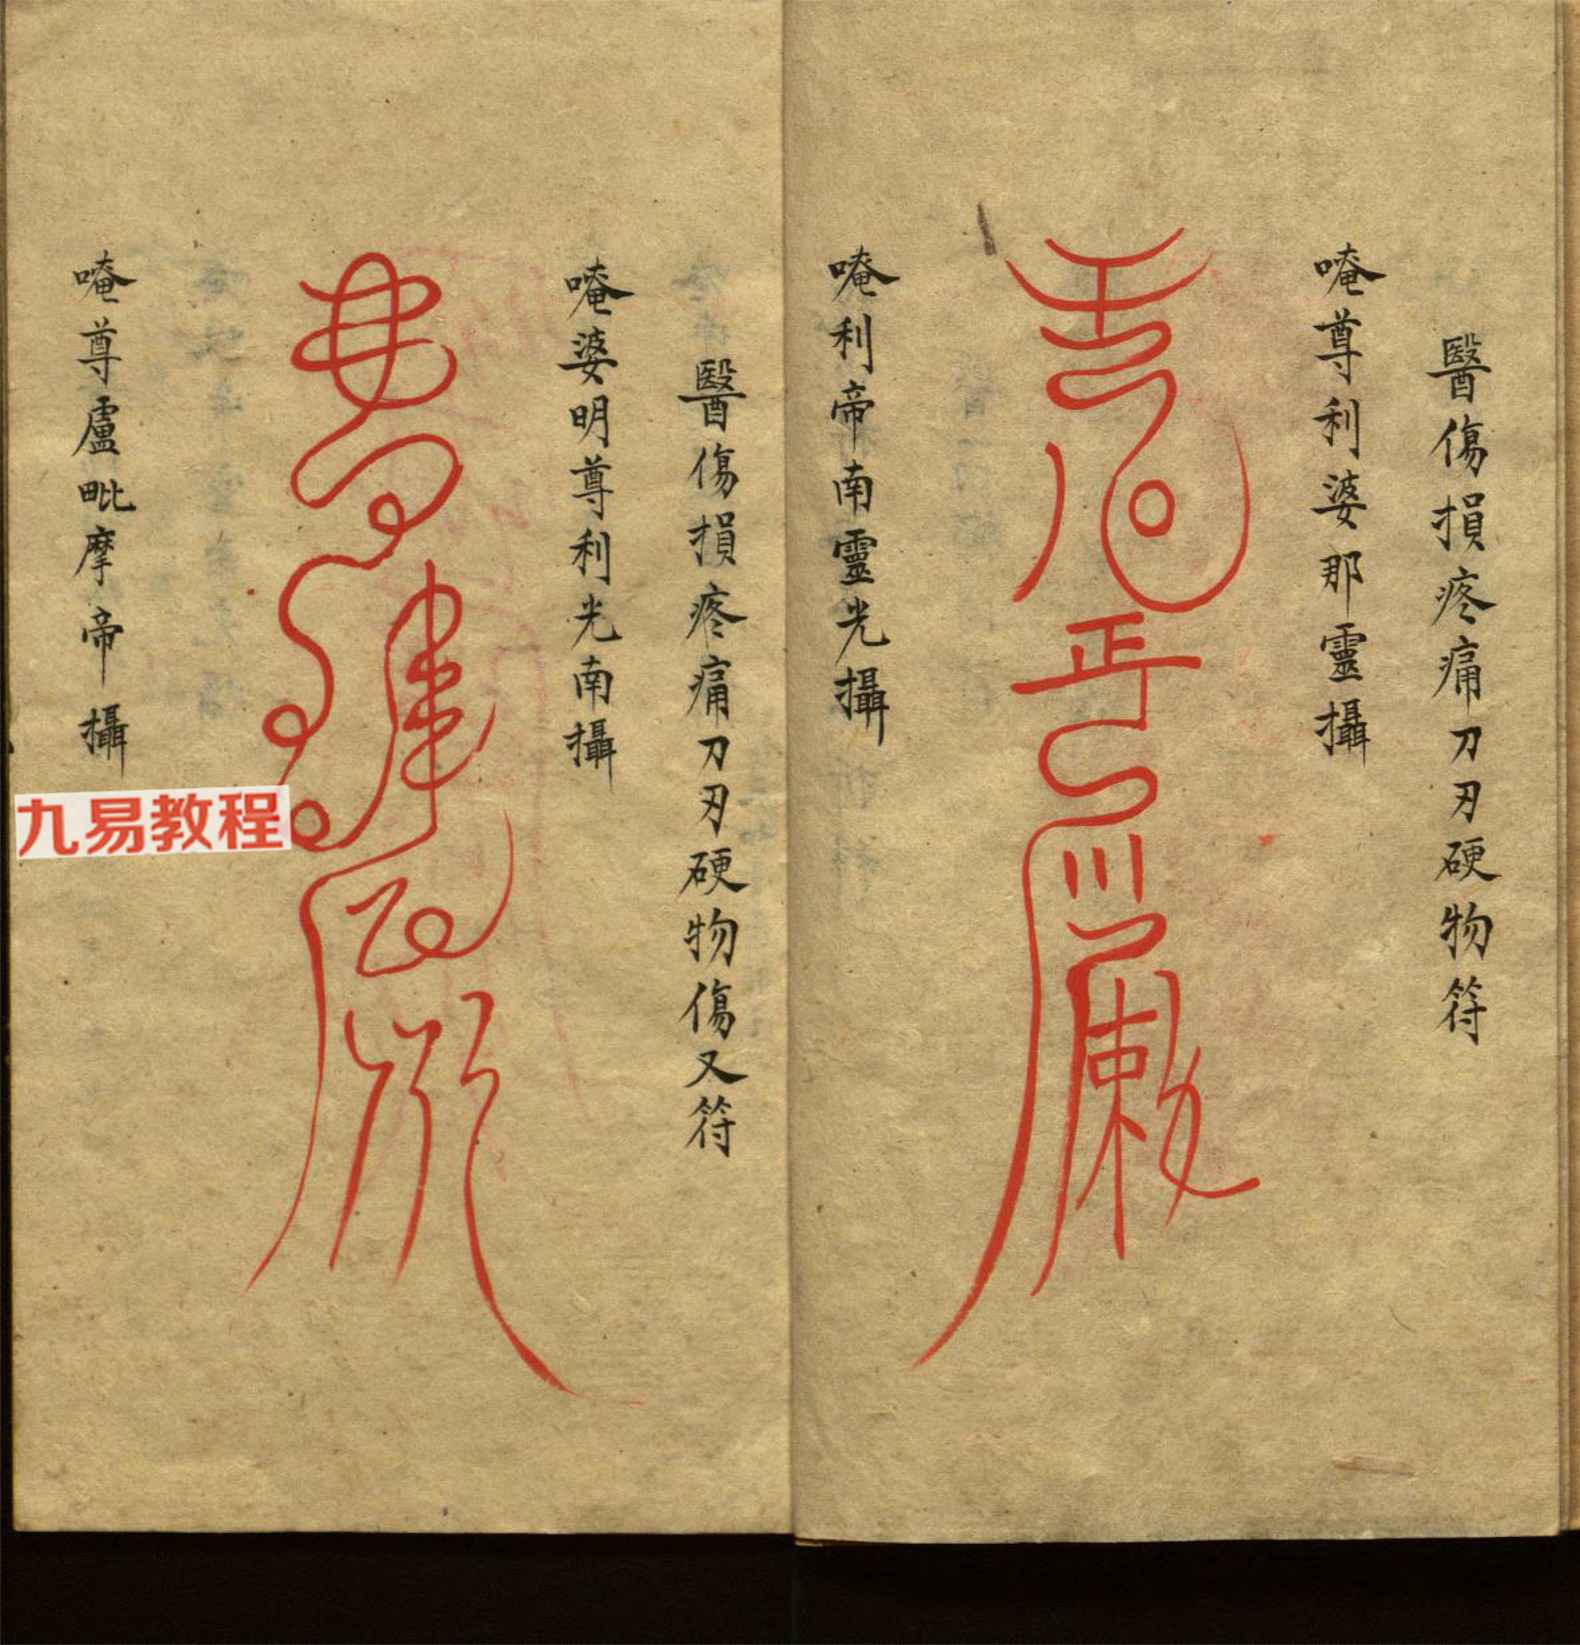 醫傷損疼痛刀刃硬物符
唵尊利婆那靈攝
唵利帝南靈光攝
醫傷損疼痛刀刃硬物傷又符
唵婆明尊利光南攝
唵尊盧毗摩帝攝
九易教程